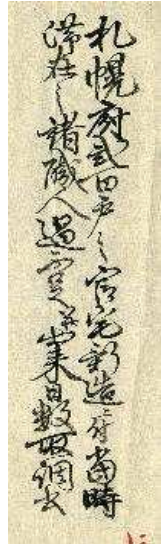 札幌府弐百戸之官宅新造ニ付当時
滞在之諸職人過定并ニ来日数取調書